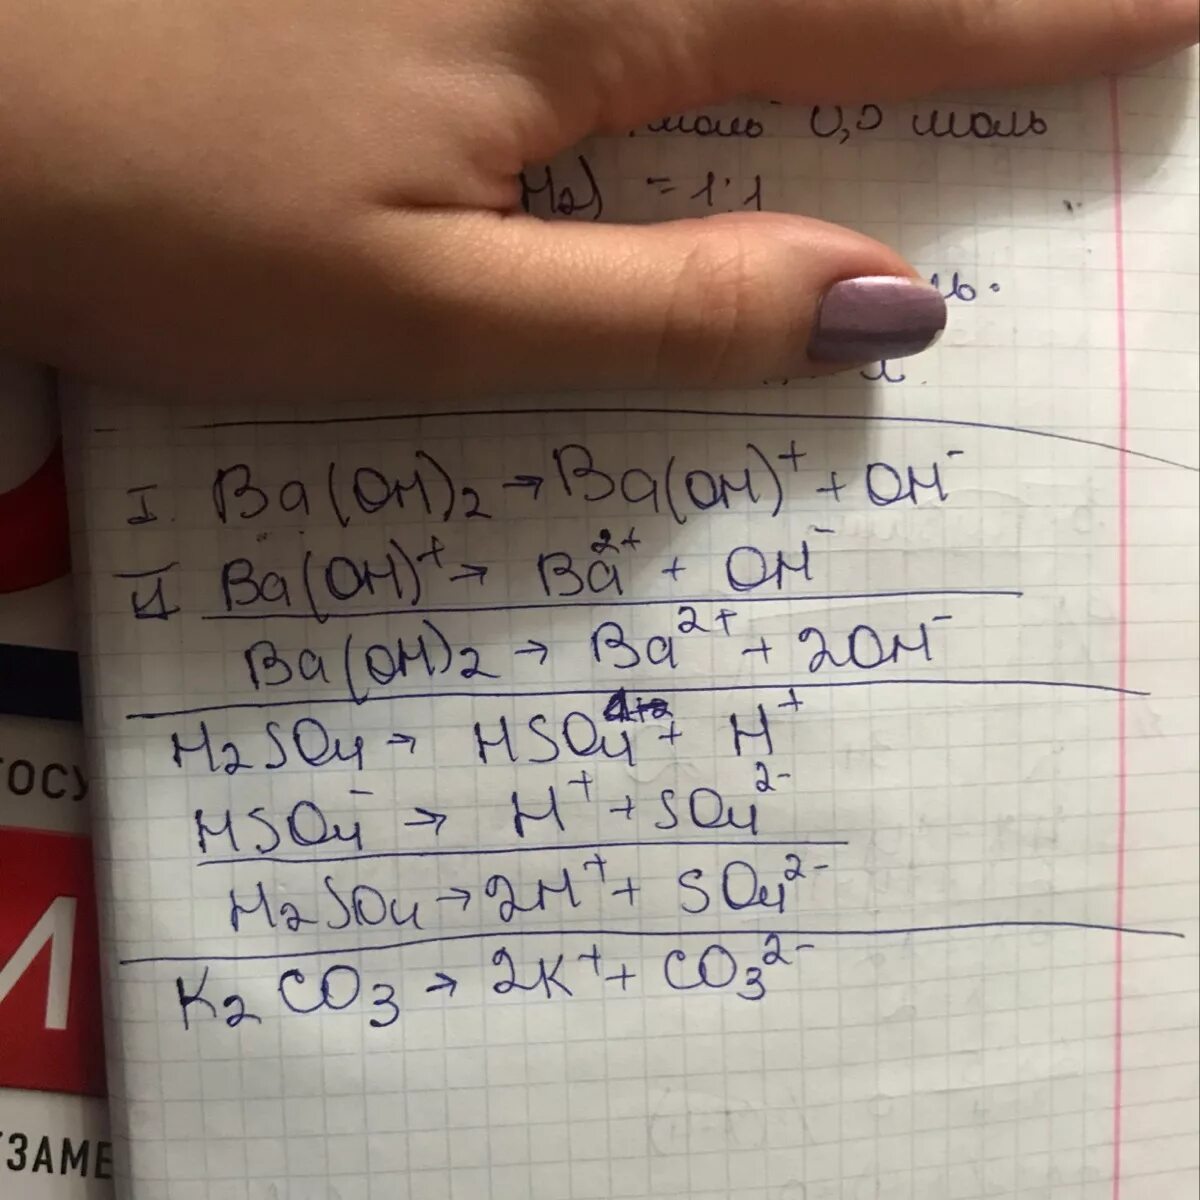 моль 0,5 моль
H2) = 1:1
ль.
л.
I. Ba(OH)2 → Ba(OH)⁺ + OH⁻
II Ba(OH)⁺ → Ba²⁺ + OH⁻
Ba(OH)2 → Ba²⁺ + 2OH⁻
H2SO4 → HSO4 + H⁺
HSO4⁻ → H⁺ + SO4²⁻
H2SO4 → 2H⁺ + SO4²⁻
K2CO3 → 2K⁺ + CO3²⁻
ГОСУ
ЭЗАМЕ